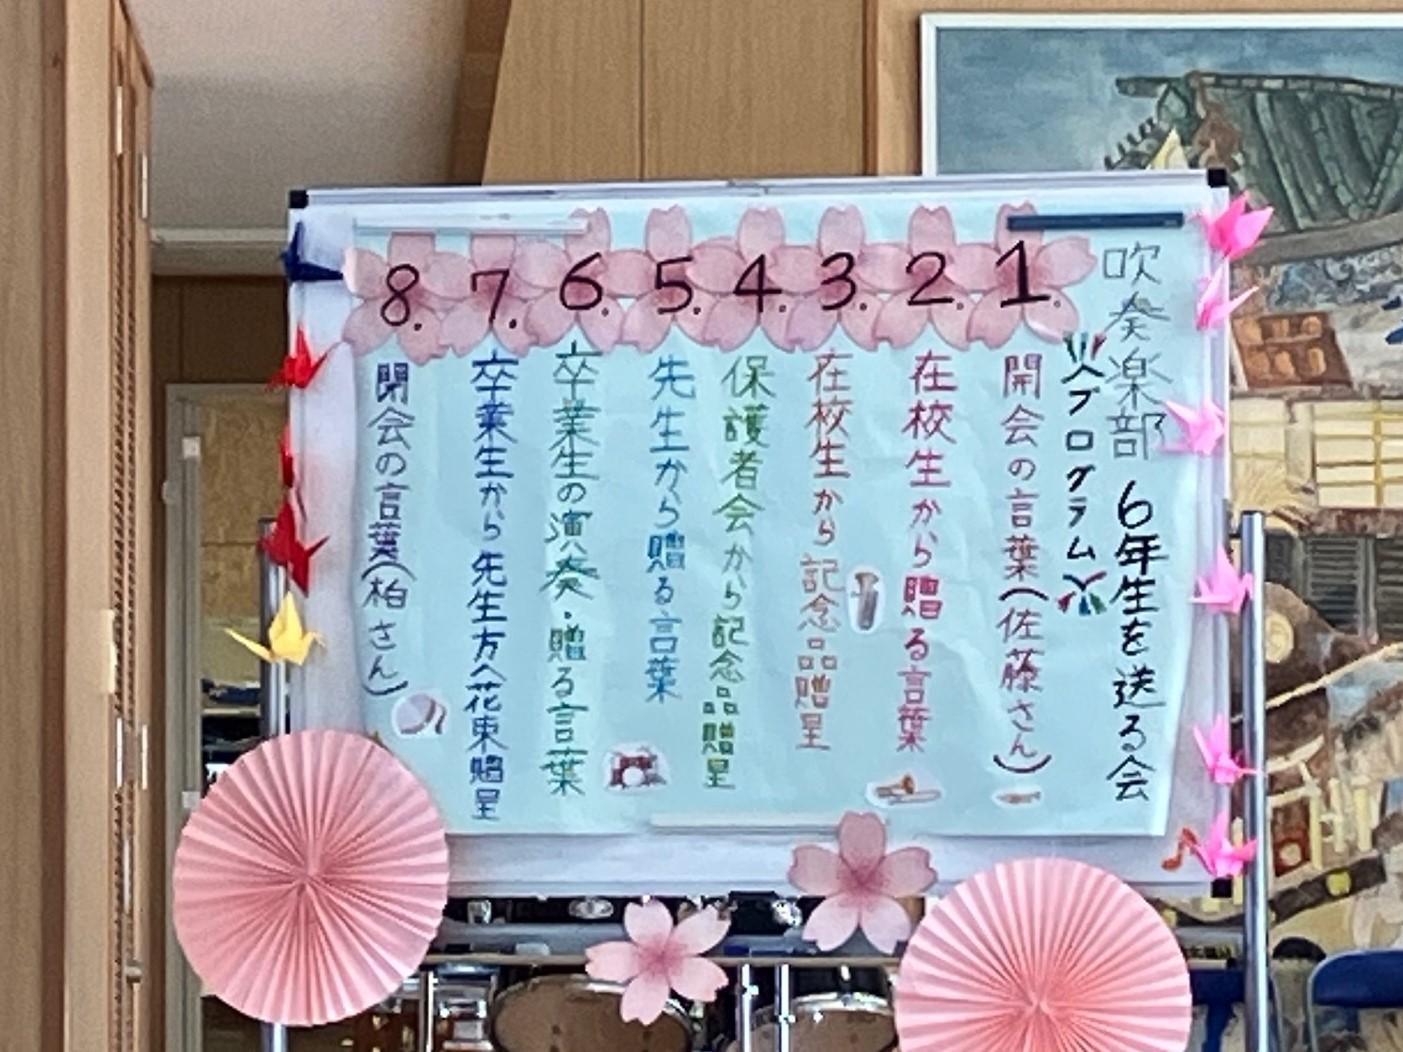 吹奏楽部 6年生を送る会
プログラム
1. 開会の言葉(佐藤さん)
2. 在校生から贈る言葉
3. 在校生から記念品贈呈
4. 保護者会から記念品贈呈
5. 先生から贈る言葉
6. 卒業生の演奏・贈る言葉
7. 卒業生から先生方へ花束贈呈
8. 閉会の言葉(柏さん)